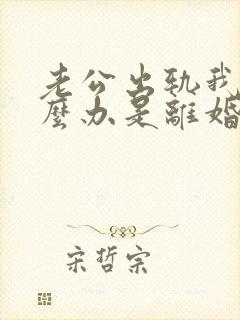 老公出轨我
麼办是離婚
宋哲宗